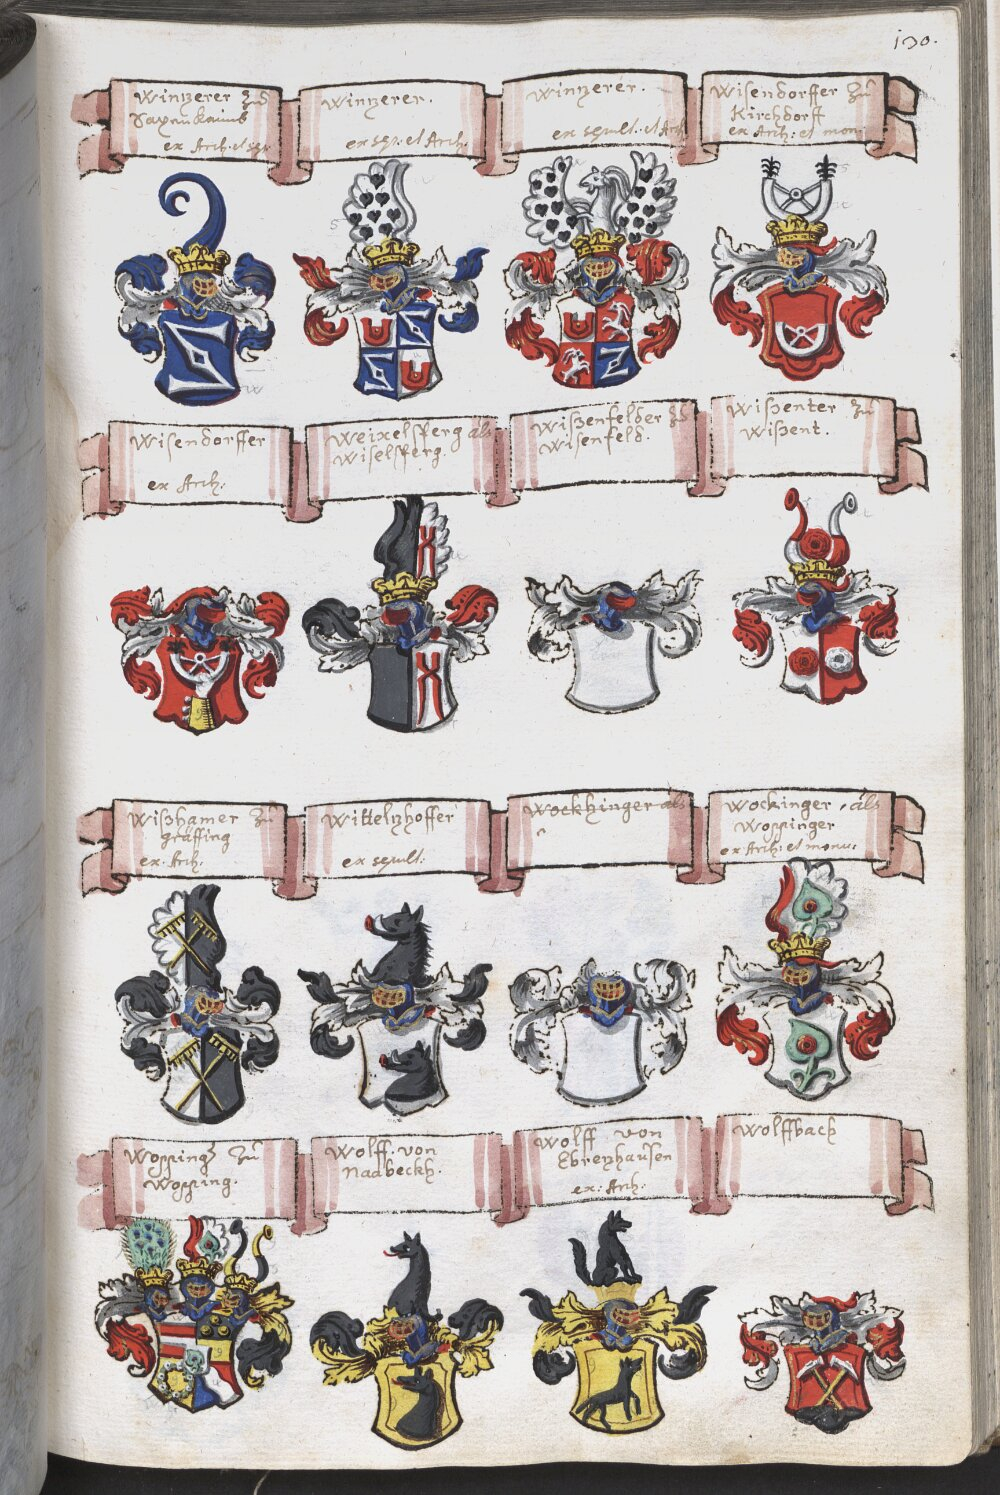 130.
Wintzerer zu
Saxenkaimb
ex Arch. et sp.
Wintzerer.
ex sep. et Arch.
Wintzerer.
ex sepult. et Arch
Wisendorffer Zů
Kirchdorff
ex Arch: et mon
Wisendorffer
ex Arch:
Weixelsperg als
Wiselsperg.
Wisßenfelder Zů
Wisenfeld.
Wisßenter Zů
Wisßent.
Wisßhamer Zů
gräffing
ex. Arch.
Wittelzhoffer
ex sepult:
Wockhinger als
Wockinger, als
Woppinger
ex Arch: et monu:
Wopping Zů
Wopping.
Wolff. von
Nadbeckh.
Wolff von
Ebrenhausen
ex: Arch:
Wolffbach